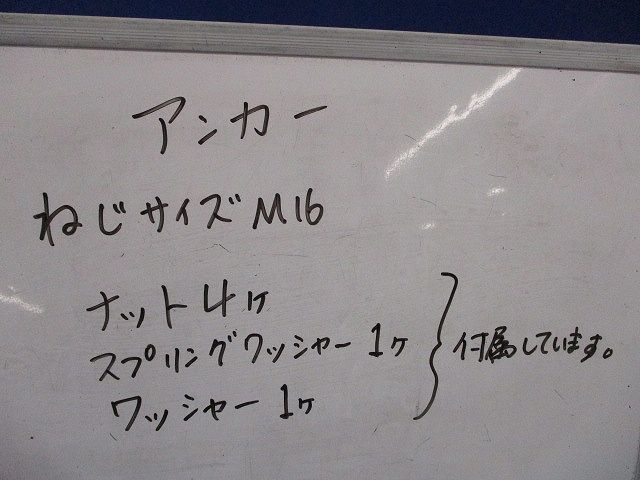 アンカー
ねじサイズ M16
ナット 4ヶ
スプリングワッシャー 1ヶ
ワッシャー 1ヶ
付属しています。